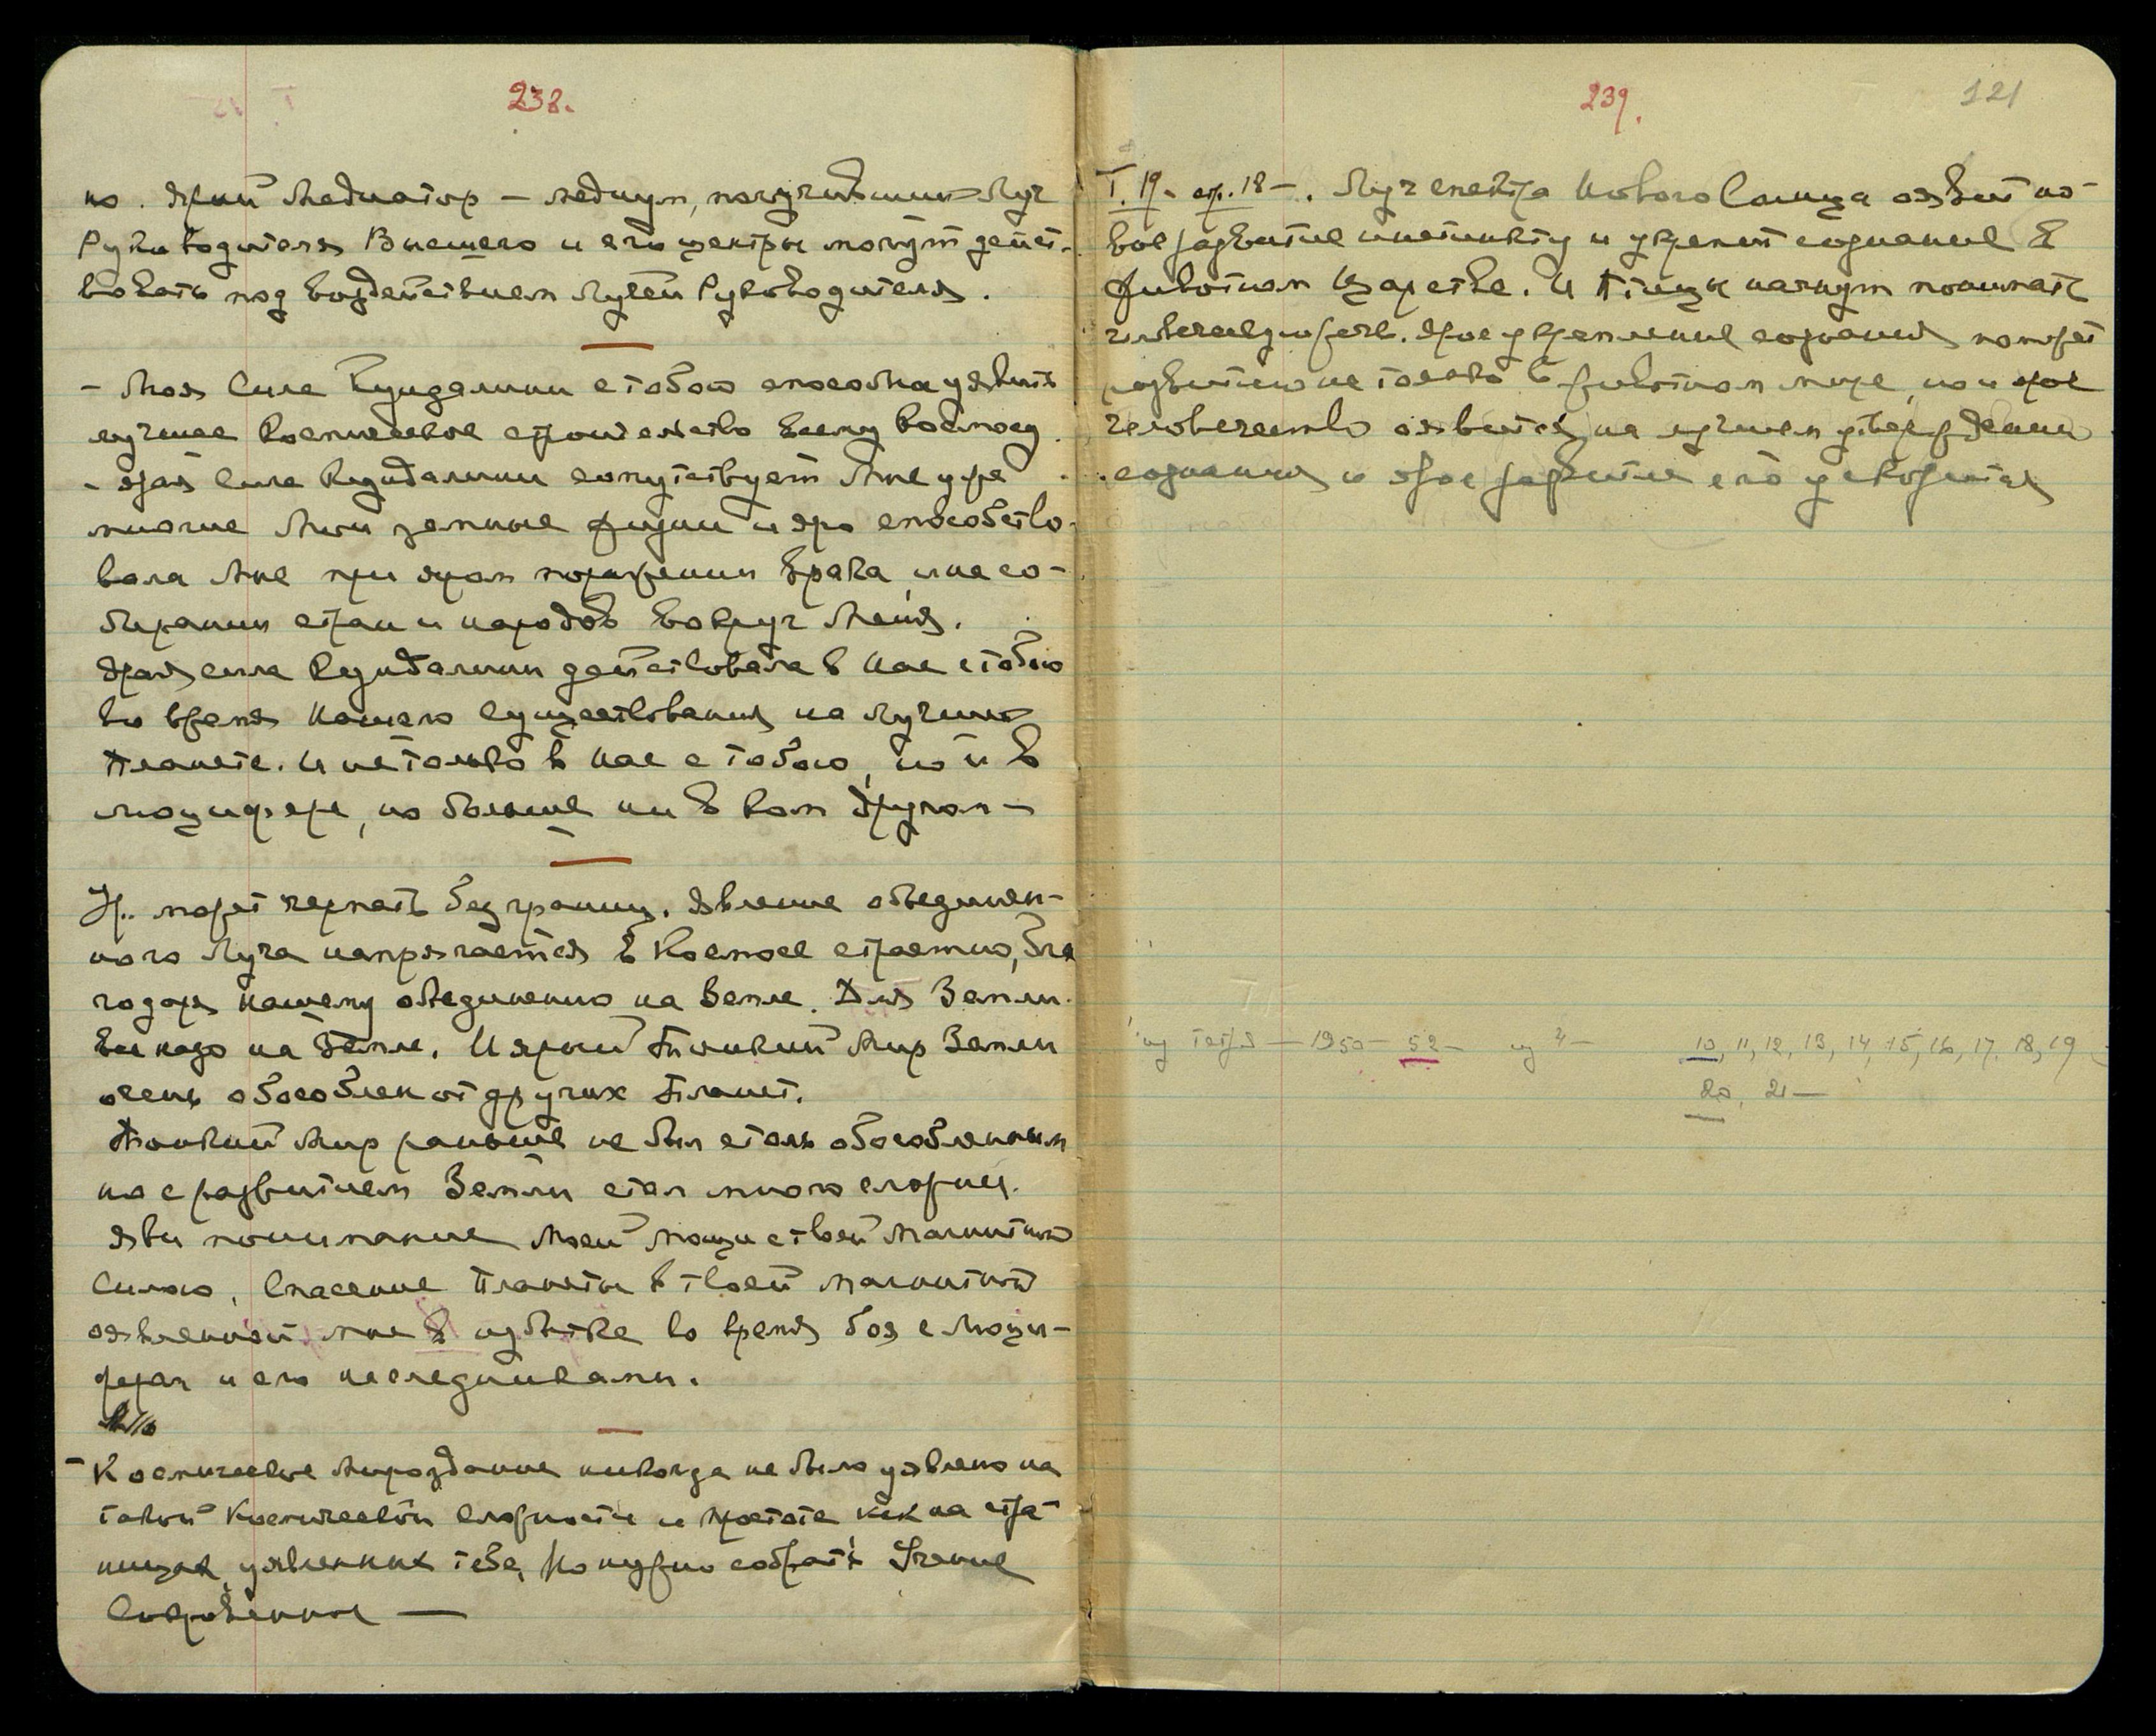 238.
но. Ярый Медиатор – медиум, получивший Луч
Руководителя Высшего и его центры могут дейст-
вовать под воздействием Лучей Руководителя.
– Моя Сила Кундалини с тобою способна уявить
лучшее Космическое строительство всему Космосу.
– Ярая Сила Кундалини сопутствует Мне уже
многие Мои земные жизни и яро способство-
вала Мне при яром поражении врага, и на со-
бирании стран и народов вокруг Меня.
Ярая сила Кундалини действовала в Нас с тобою
во время Нашего существования на Лучшей
Планете. И не только в Нас с тобою, но и в
Люцифере, но больше ни в ком другом –
Ур. может черпать без границ. Явление объединен-
ного Луча напрягается в Космосе страстно, бла
годаря нашему объединению на Земле. Для Земли
все надо на Земле. И ярый Тонкий Мир Земли
очень обособлен от других Планет.
Тонкий Мир раньше не был столь обособленным
но с развитием Земли стал много сложней.
Яви понимание Моей Мощи с твоей Магнитной
Силою, Спасение Планеты в твоей магнитной
оявленной мне в избытке во время боя с Люци-
фером и его наследниками.
– Космическое Мироздание никогда не было уявлено на
такой Космической сложности и простоте как на стра
ницах уявленных тебе, Но нужно собрать Учение
Сокровенное —
239.
121
Т. 19. стр. 18 –. Луч спектра Нового Солнца оявит но-
вое развитие инстинкту и укрепит сознание в
животном Царстве. И Птицы начнут понимать
человека
Ярое укрепление сознания поможет
развитию не только в животном мире, но и ярое
человечество оявится на лучшем утверждении
сознания и ярое развитие его ускорится
из тетр – 1950 – 52 – из 10, 11, 12, 13, 14, 15, 16, 17, 18, 19
20, 21 —